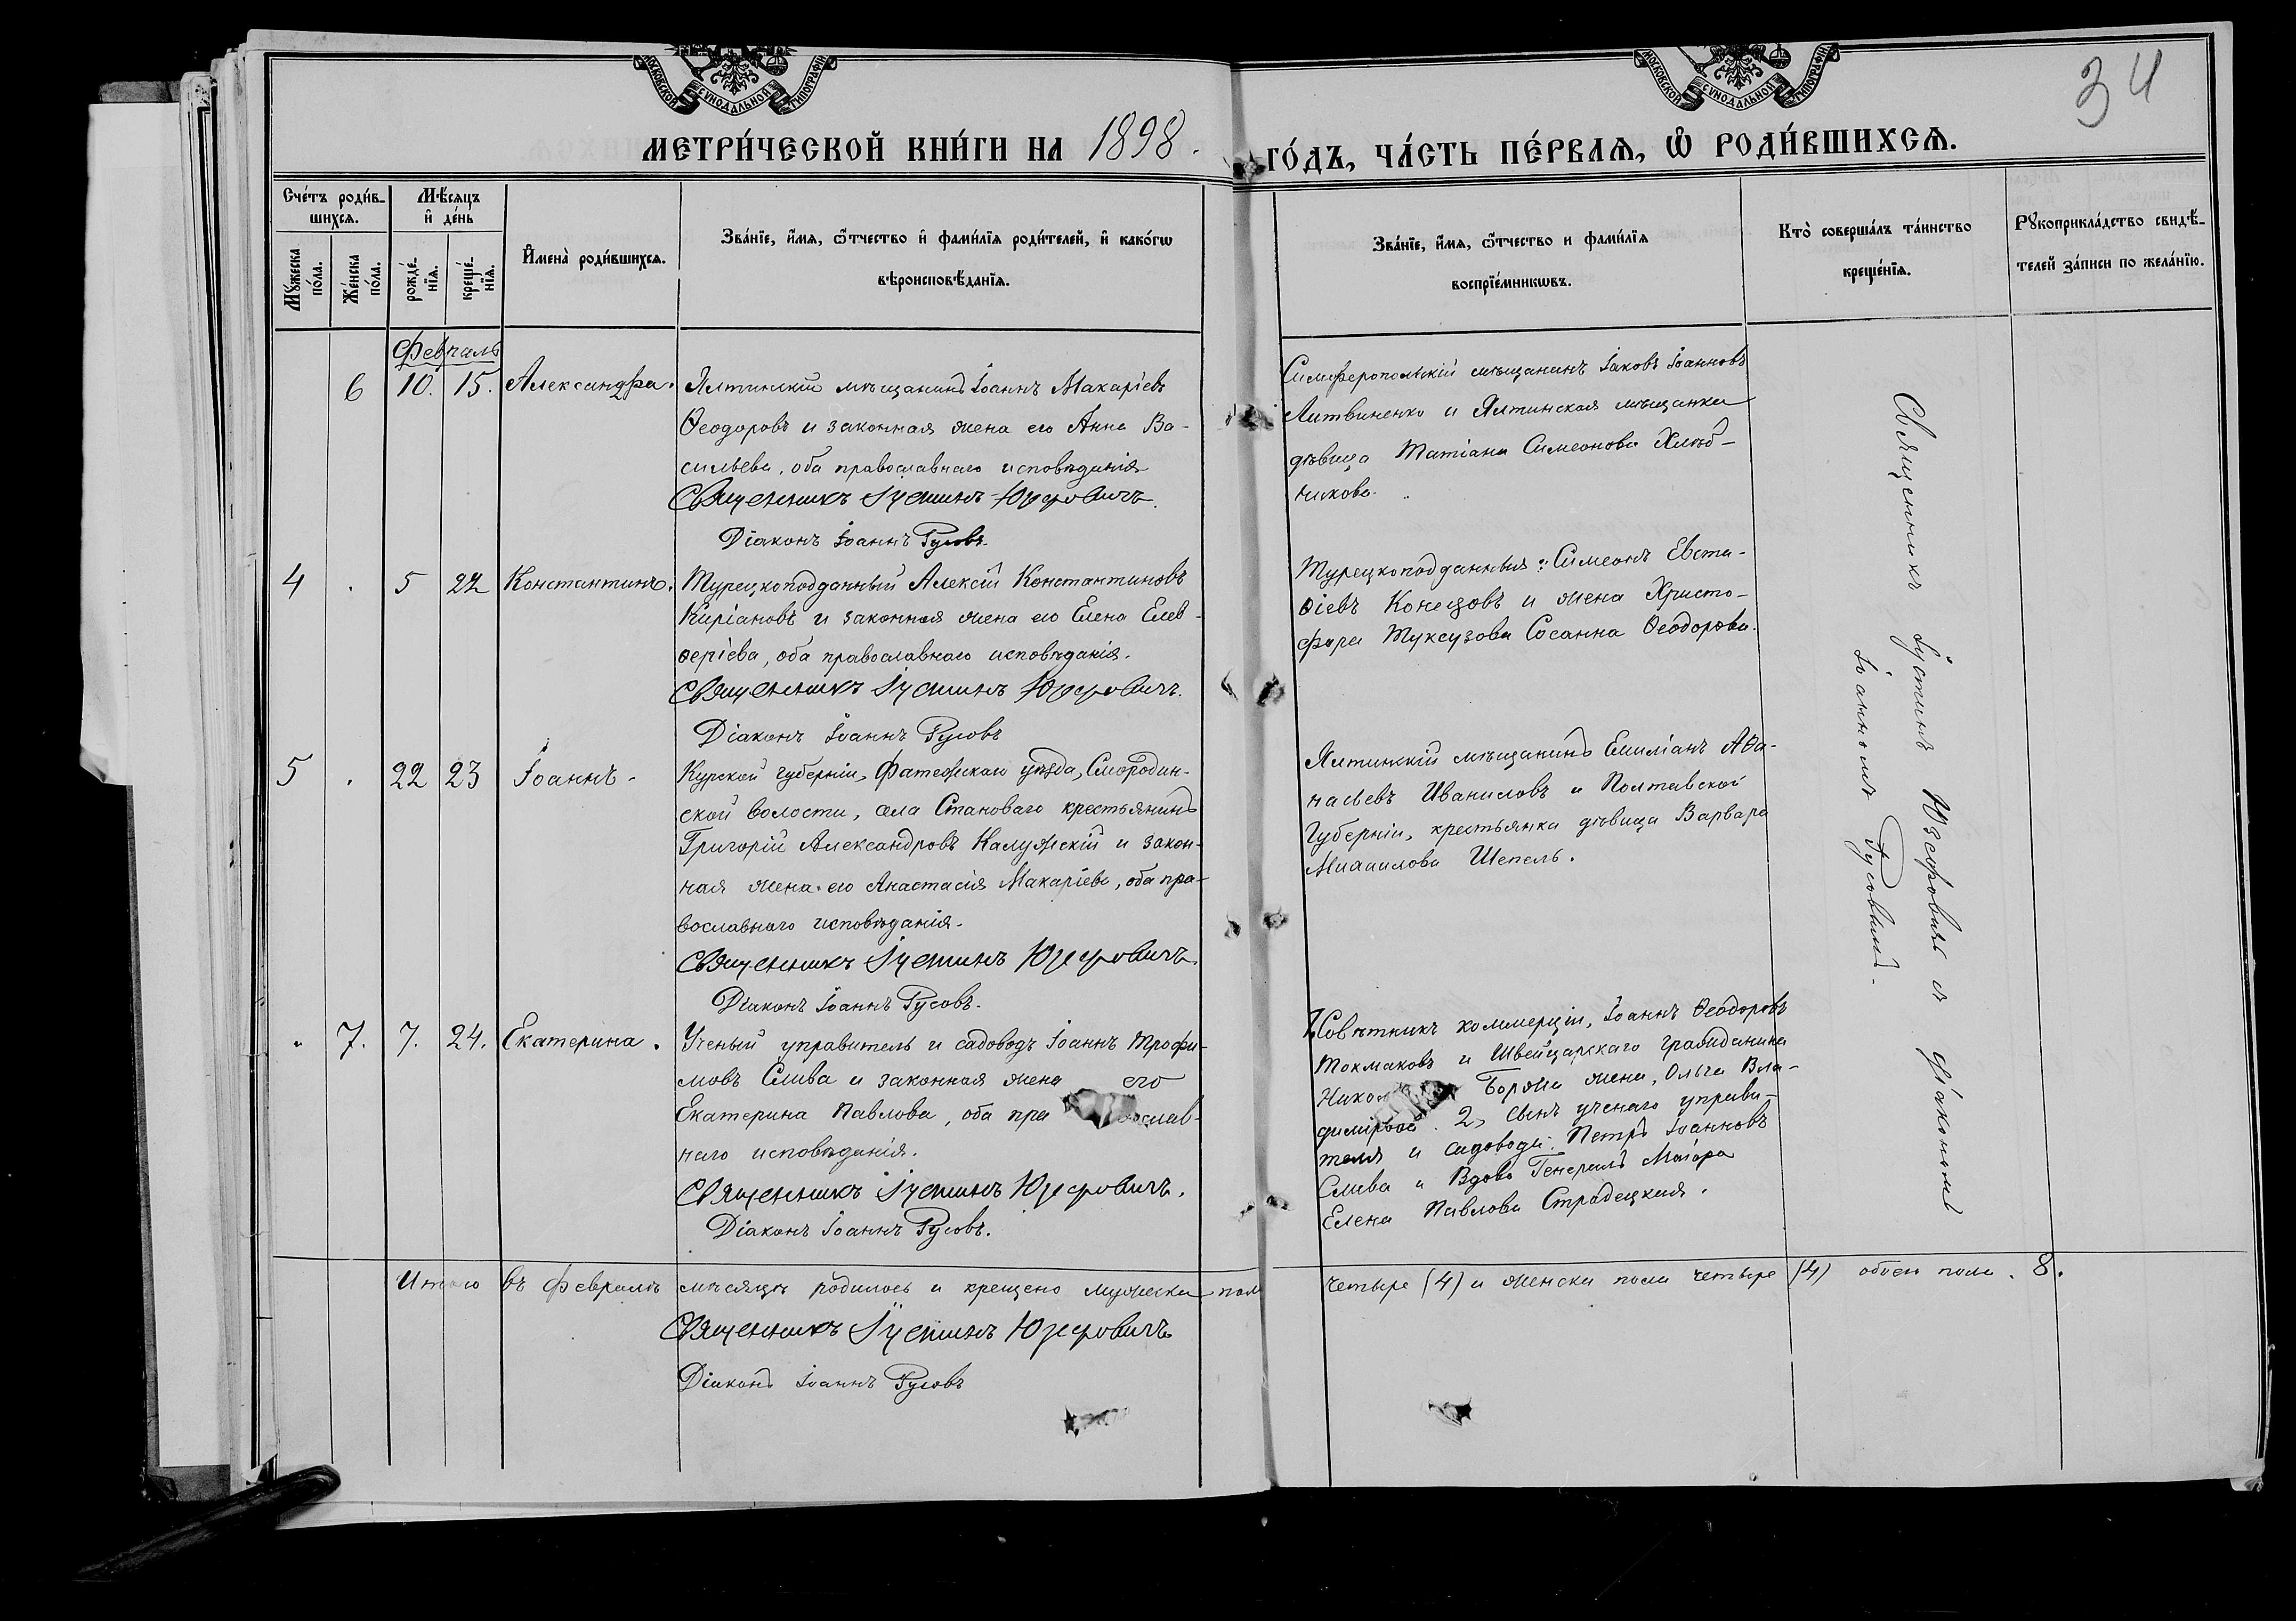 МОСКОВСКОЙ СѴНОДАЛЬНОЙ ТИПОГРАФІИ
МОСКОВСКОЙ СѴНОДАЛЬНОЙ ТИПОГРАФІИ
34
МЕТРИ́ЧЕСКОЙ КНИ́ГИ НА 1898. ГО́ДЪ, ЧА́СТЬ ПЕ́РВАѦ, Ѡ РОДИ́ВШИХСѦ.
Сче́тъ роди́в-
шихсѧ.
Мꙋ́жеска по́ла.
Же́нска по́ла.
Мѣ́сѧцъ
и де́нь
рожде́-
нїѧ.
креще́-
нїѧ.
Имена̀ роди́вшихсѧ.
Зва́нїе, и́мѧ, ѻ́тчество и фами́лїѧ роди́телей, и како́гѡ
вѣроисповѣ́данїѧ.
Зва́нїе, и́мѧ, ѻ́тчество и фами́лїѧ
воспрїе́мникѡвъ.
Кто̀ соверша́лъ та́инство
креще́нїѧ.
Рꙋкоприкла́дство свидѣ́-
телей за́писи по жела́нїю.
Февраль
6 10. 15. Александра.
Ялтинскій мѣщанинъ Іоаннъ Макаріевъ
Ѳеодоровъ и законная жена его Анна Ва-
сильева, оба православнаго исповѣданія
Священникъ Іустинъ Юзефовичъ.
Діаконъ Іоаннъ Русовъ.
Симферопольскій мѣщанинъ Іаковъ Іоанновъ
Литвиненко и Ялтинская мѣщанка
дѣвица Татіана Симеонова Хлѣб-
никова.
4 . 5 22 Константинъ.
Турецкоподданный Алексій Константиновъ
Киріановъ и законная жена его Елена Елев-
ѳеріева, оба православнаго исповѣданія.
Священникъ Іустинъ Юзефовичъ.
Діаконъ Іоаннъ Русовъ
Турецкоподданныя: Симеонъ Евста-
ѳіевъ и жена Христо-
фора Сосанна Ѳеодорова.
5 . 22 23 Іоаннъ.
Курской губерніи, Фатежскаго уѣзда, Смородин-
ской волости, села Становаго крестьянинъ
Григорій Александровъ Калужскій и закон-
ная жена его Анастасія Макаріева, оба пра-
вославнаго исповѣданія.
Священникъ Іустинъ Юзефовичъ.
Діаконъ Іоаннъ Русовъ.
Ялтинскій мѣщанинъ Емиліанъ Аѳа-
насьевъ Иваниловъ и Полтавской
Губерніи, крестьянка дѣвица Варвара
Михаилова Шепель.
" 7. 7. 24. Екатерина.
Ученый управитель и садоводъ Іоаннъ Трофи-
мовъ Слива и законная жена его
Екатерина Павлова, оба православ-
наго исповѣданія.
Священникъ Іустинъ Юзефовичъ.
Діаконъ Іоаннъ Русовъ.
1, Совѣтникъ коммерціи, Іоаннъ Ѳеодоровъ
Токмаковъ и Швейцарскаго гражданина
жена, Ольга Вла-
димірова. 2, Сынъ ученаго управи-
теля и садовода: Петръ Іоанновъ
Слива и Вдова Генералъ Маіора
Елена Павлова Страдецкая.
Священникъ Іустинъ Юзефовичъ съ діакономъ
Іоанномъ Русовымъ.
Итого въ февралѣ мѣсяцѣ родилось и крещено мужеска пола четыре (4) и женска пола четыре (4) обоего пола. 8.
Священникъ Іустинъ Юзефовичъ
Діаконъ Іоаннъ Русовъ